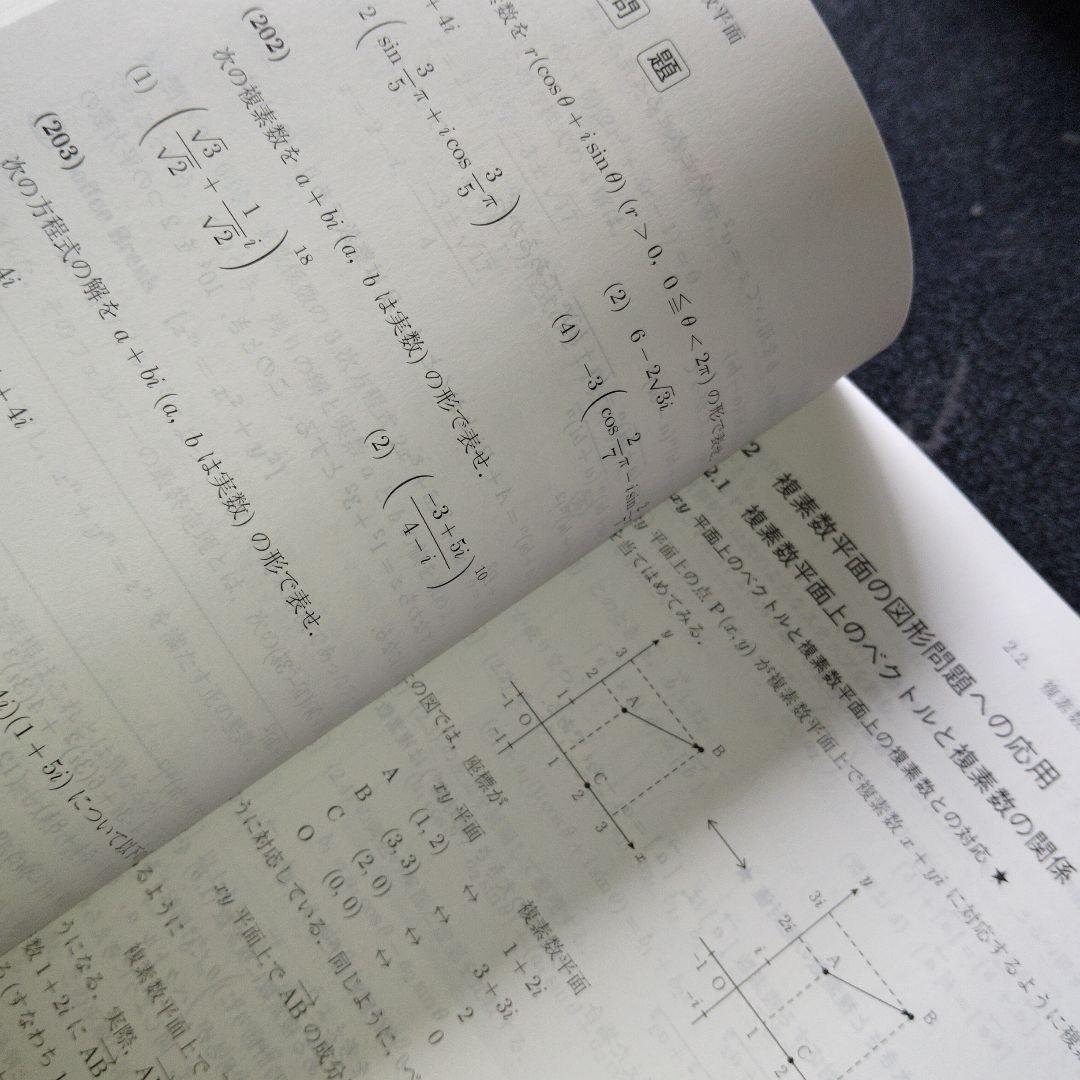 数平面
問 題
数を r(cosθ + i sinθ) (r > 0, 0 ≦ θ < 2π) の形で表せ.
+ 4i
(2) 6 − 2√3i
2(sin 3/5 π + i cos 3/5 π)
(4) −3(cos 2/7 π − i sin
(202)
次の複素数を a + bi (a, b は実数) の形で表せ.
(1) (√3/√2 + 1/√2 i)^18
(2) ((−3 + 5i)/(4 − i))^10
(203)
次の方程式の解を a + bi (a, b は実数) の形で表せ.
4i
+ 4i
i)(1 + 5i) について以
2.2 複素数
2 複素数平面の図形問題への応用
2.1 複素数平面上のベクトルと複素数の関係
xy 平面上のベクトルと複素数平面上の複素数との対応 ★
xy 平面上の点 P(x, y) が複素数平面上で複素数 x + yi に対応するように複素
を当てはめてみる.
y
3
2
1
−1
O
−1
1
2
3
x
A
B
C
y
3i
2i
i
−1
O
−i
1
2
A
B
C
の図では, 座標が
xy 平面
複素数平面
A (1, 2) ↔ 1 + 2i
B (3, 3) ↔ 3 + 3i
C (2, 0) ↔ 2
O (0, 0) ↔ 0
うに対応している. 同じように,
xy 平面上で AB の成分
るように
複素数平面上で
うになる. 実際,
数 1 + 2i に AB
(すなわち